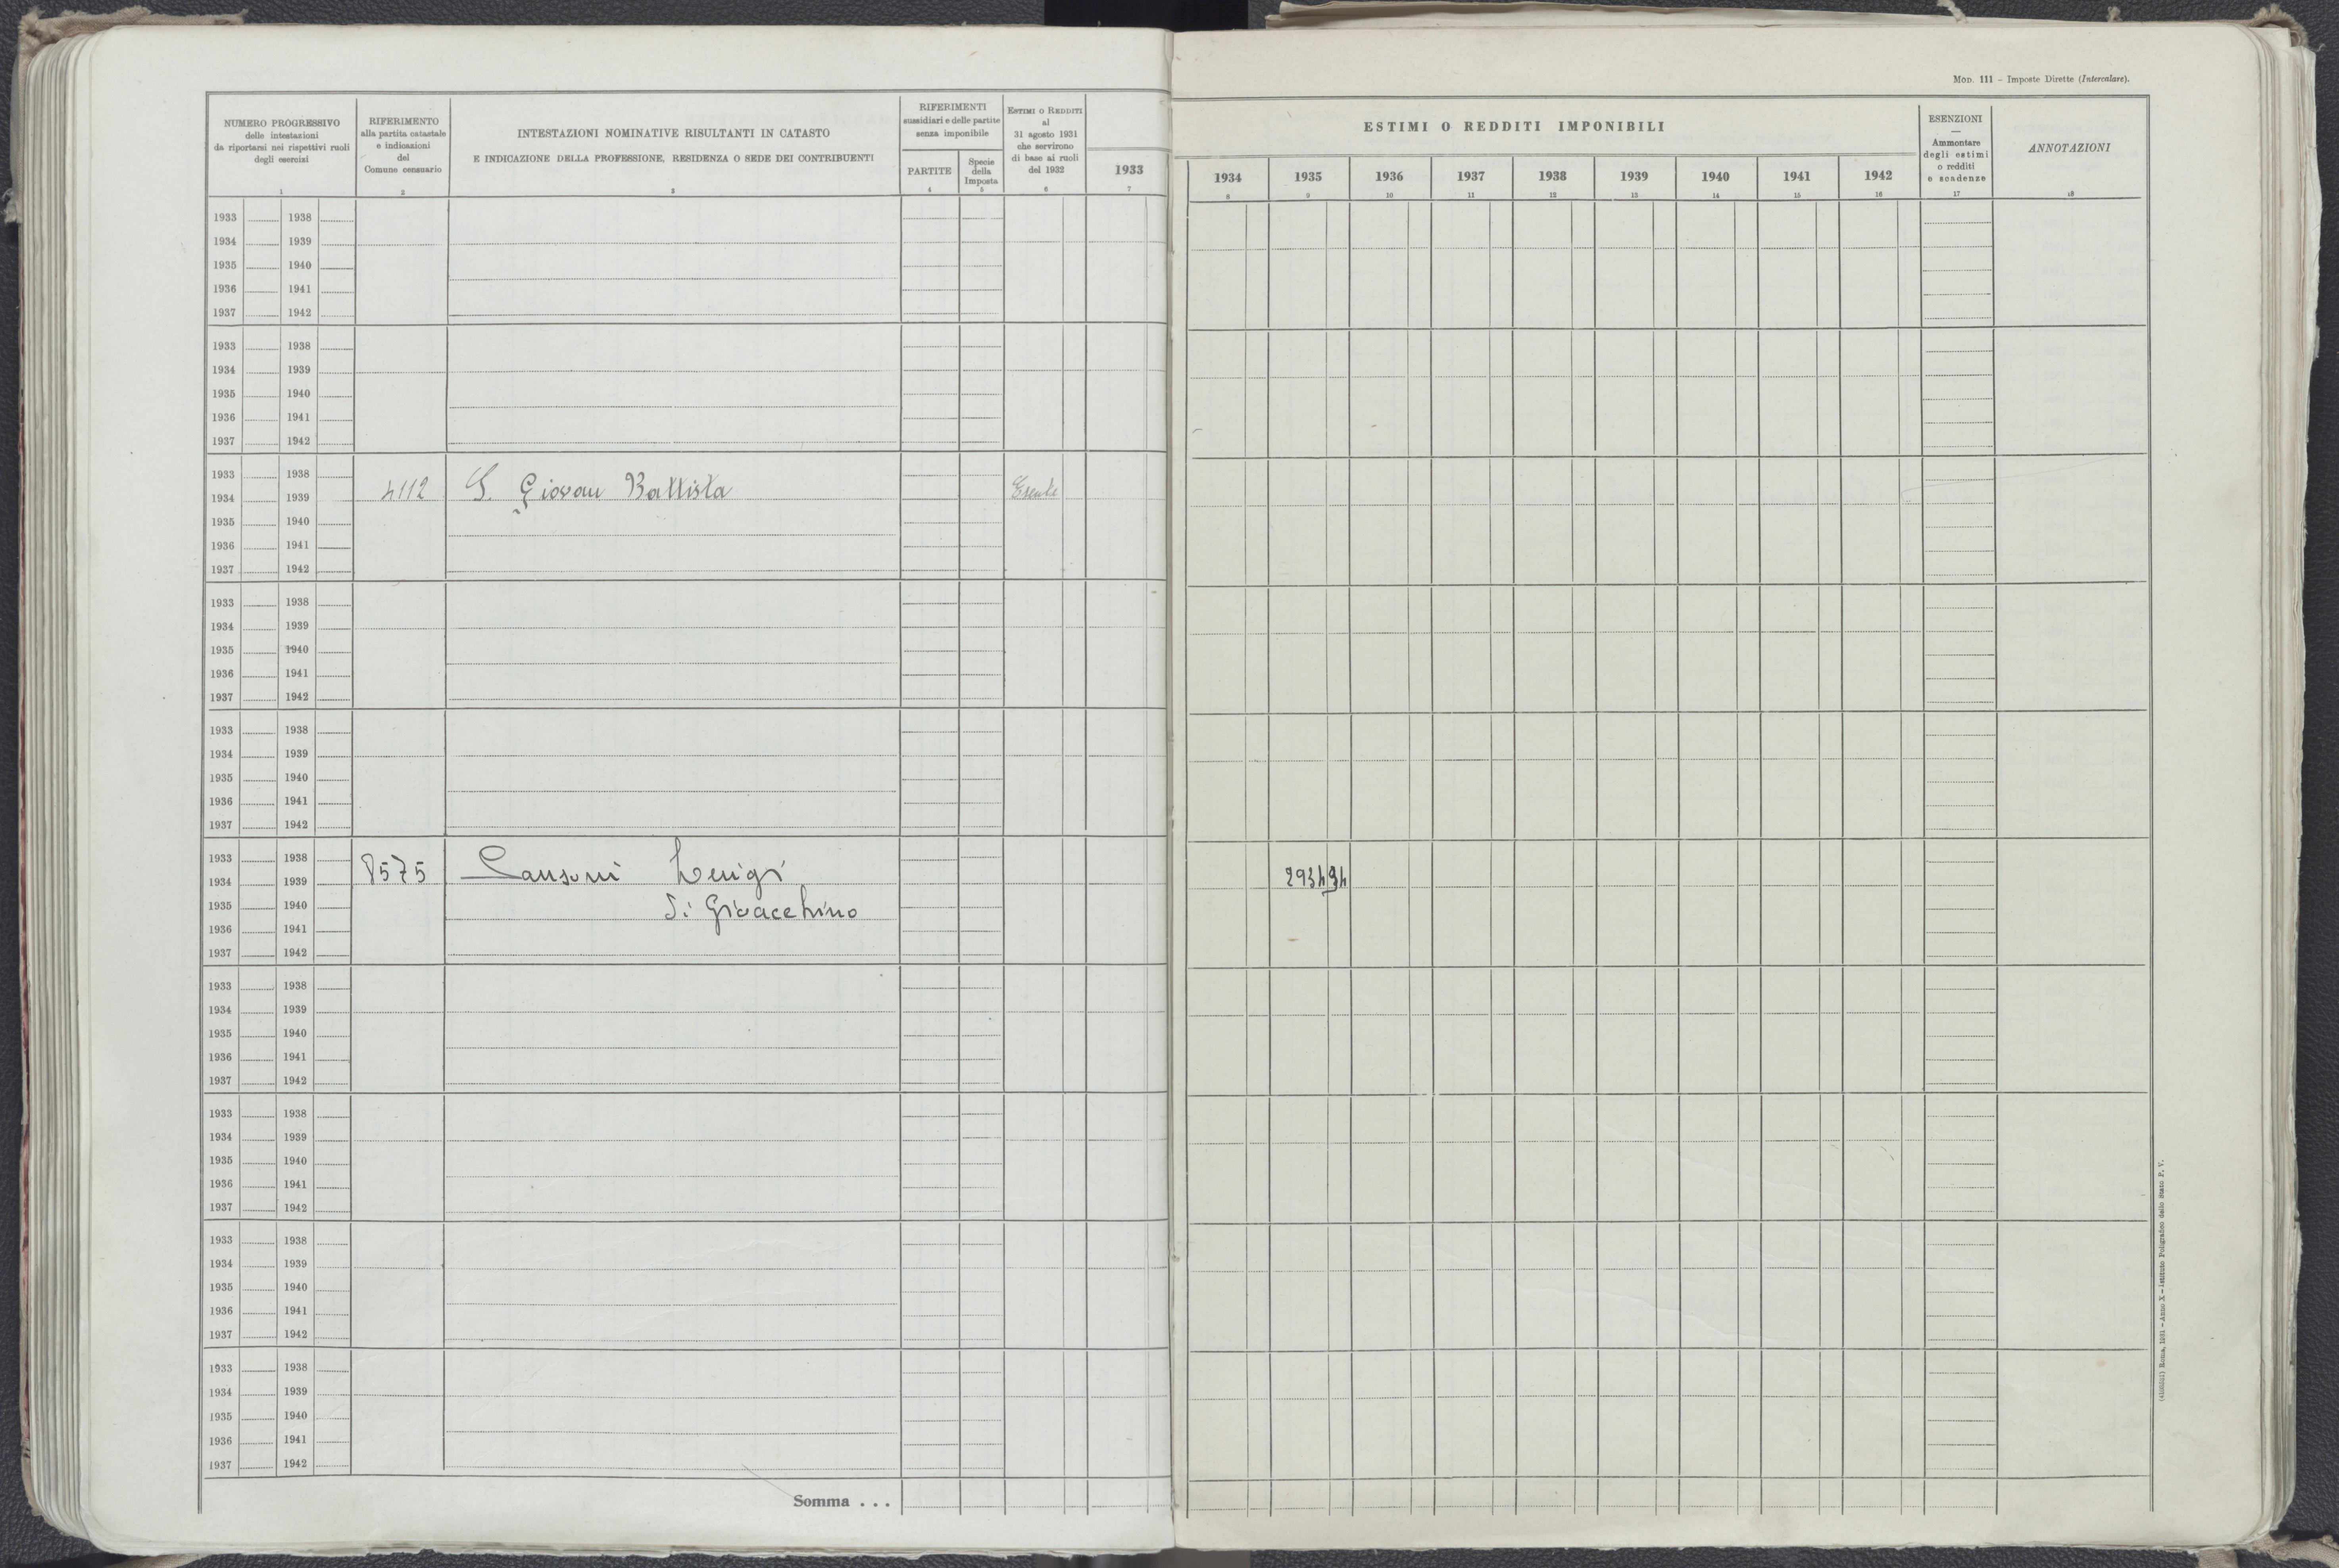 Mod. 111 – Imposte Dirette (Intercalare).
NUMERO PROGRESSIVO
delle intestazioni
da riportarsi nei rispettivi ruoli
degli esercizi
1
RIFERIMENTO
alla partita catastale
e indicazioni
del
Comune censuario
2
INTESTAZIONI NOMINATIVE RISULTANTI IN CATASTO
E INDICAZIONE DELLA PROFESSIONE, RESIDENZA O SEDE DEI CONTRIBUENTI
3
RIFERIMENTI
sussidiari e delle partite
senza imponibile
PARTITE
4
Specie
della
Imposta
5
Estimi o Redditi
al
31 agosto 1931
che servirono
di base ai ruoli
del 1932
6
1933
7
ESTIMI O REDDITI IMPONIBILI
1934 1935 1936 1937 1938 1939 1940 1941 1942
8 9 10 11 12 13 14 15 16
ESENZIONI
—
Ammontare
degli estimi
o redditi
e scadenze
17
ANNOTAZIONI
18
1933 1938
1934 1939
1935 1940
1936 1941
1937 1942
1933 1938
1934 1939
1935 1940
1936 1941
1937 1942
1933 1938
1934 1939 4112 S. Giovan Battista Esente
1935 1940
1936 1941
1937 1942
1933 1938
1934 1939
1935 1940
1936 1941
1937 1942
1933 1938
1934 1939
1935 1940
1936 1941
1937 1942
1933 1938
1934 1939 8575 Sansoni Luigi 2934 34
1935 1940 di Gioacchino
1936 1941
1937 1942
1933 1938
1934 1939
1935 1940
1936 1941
1937 1942
1933 1938
1934 1939
1935 1940
1936 1941
1937 1942
1933 1938
1934 1939
1935 1940
1936 1941
1937 1942
1933 1938
1934 1939
1935 1940
1936 1941
1937 1942
Somma . . .
Roma, 1931 – Anno X – Istituto Poligrafico dello Stato P. V.